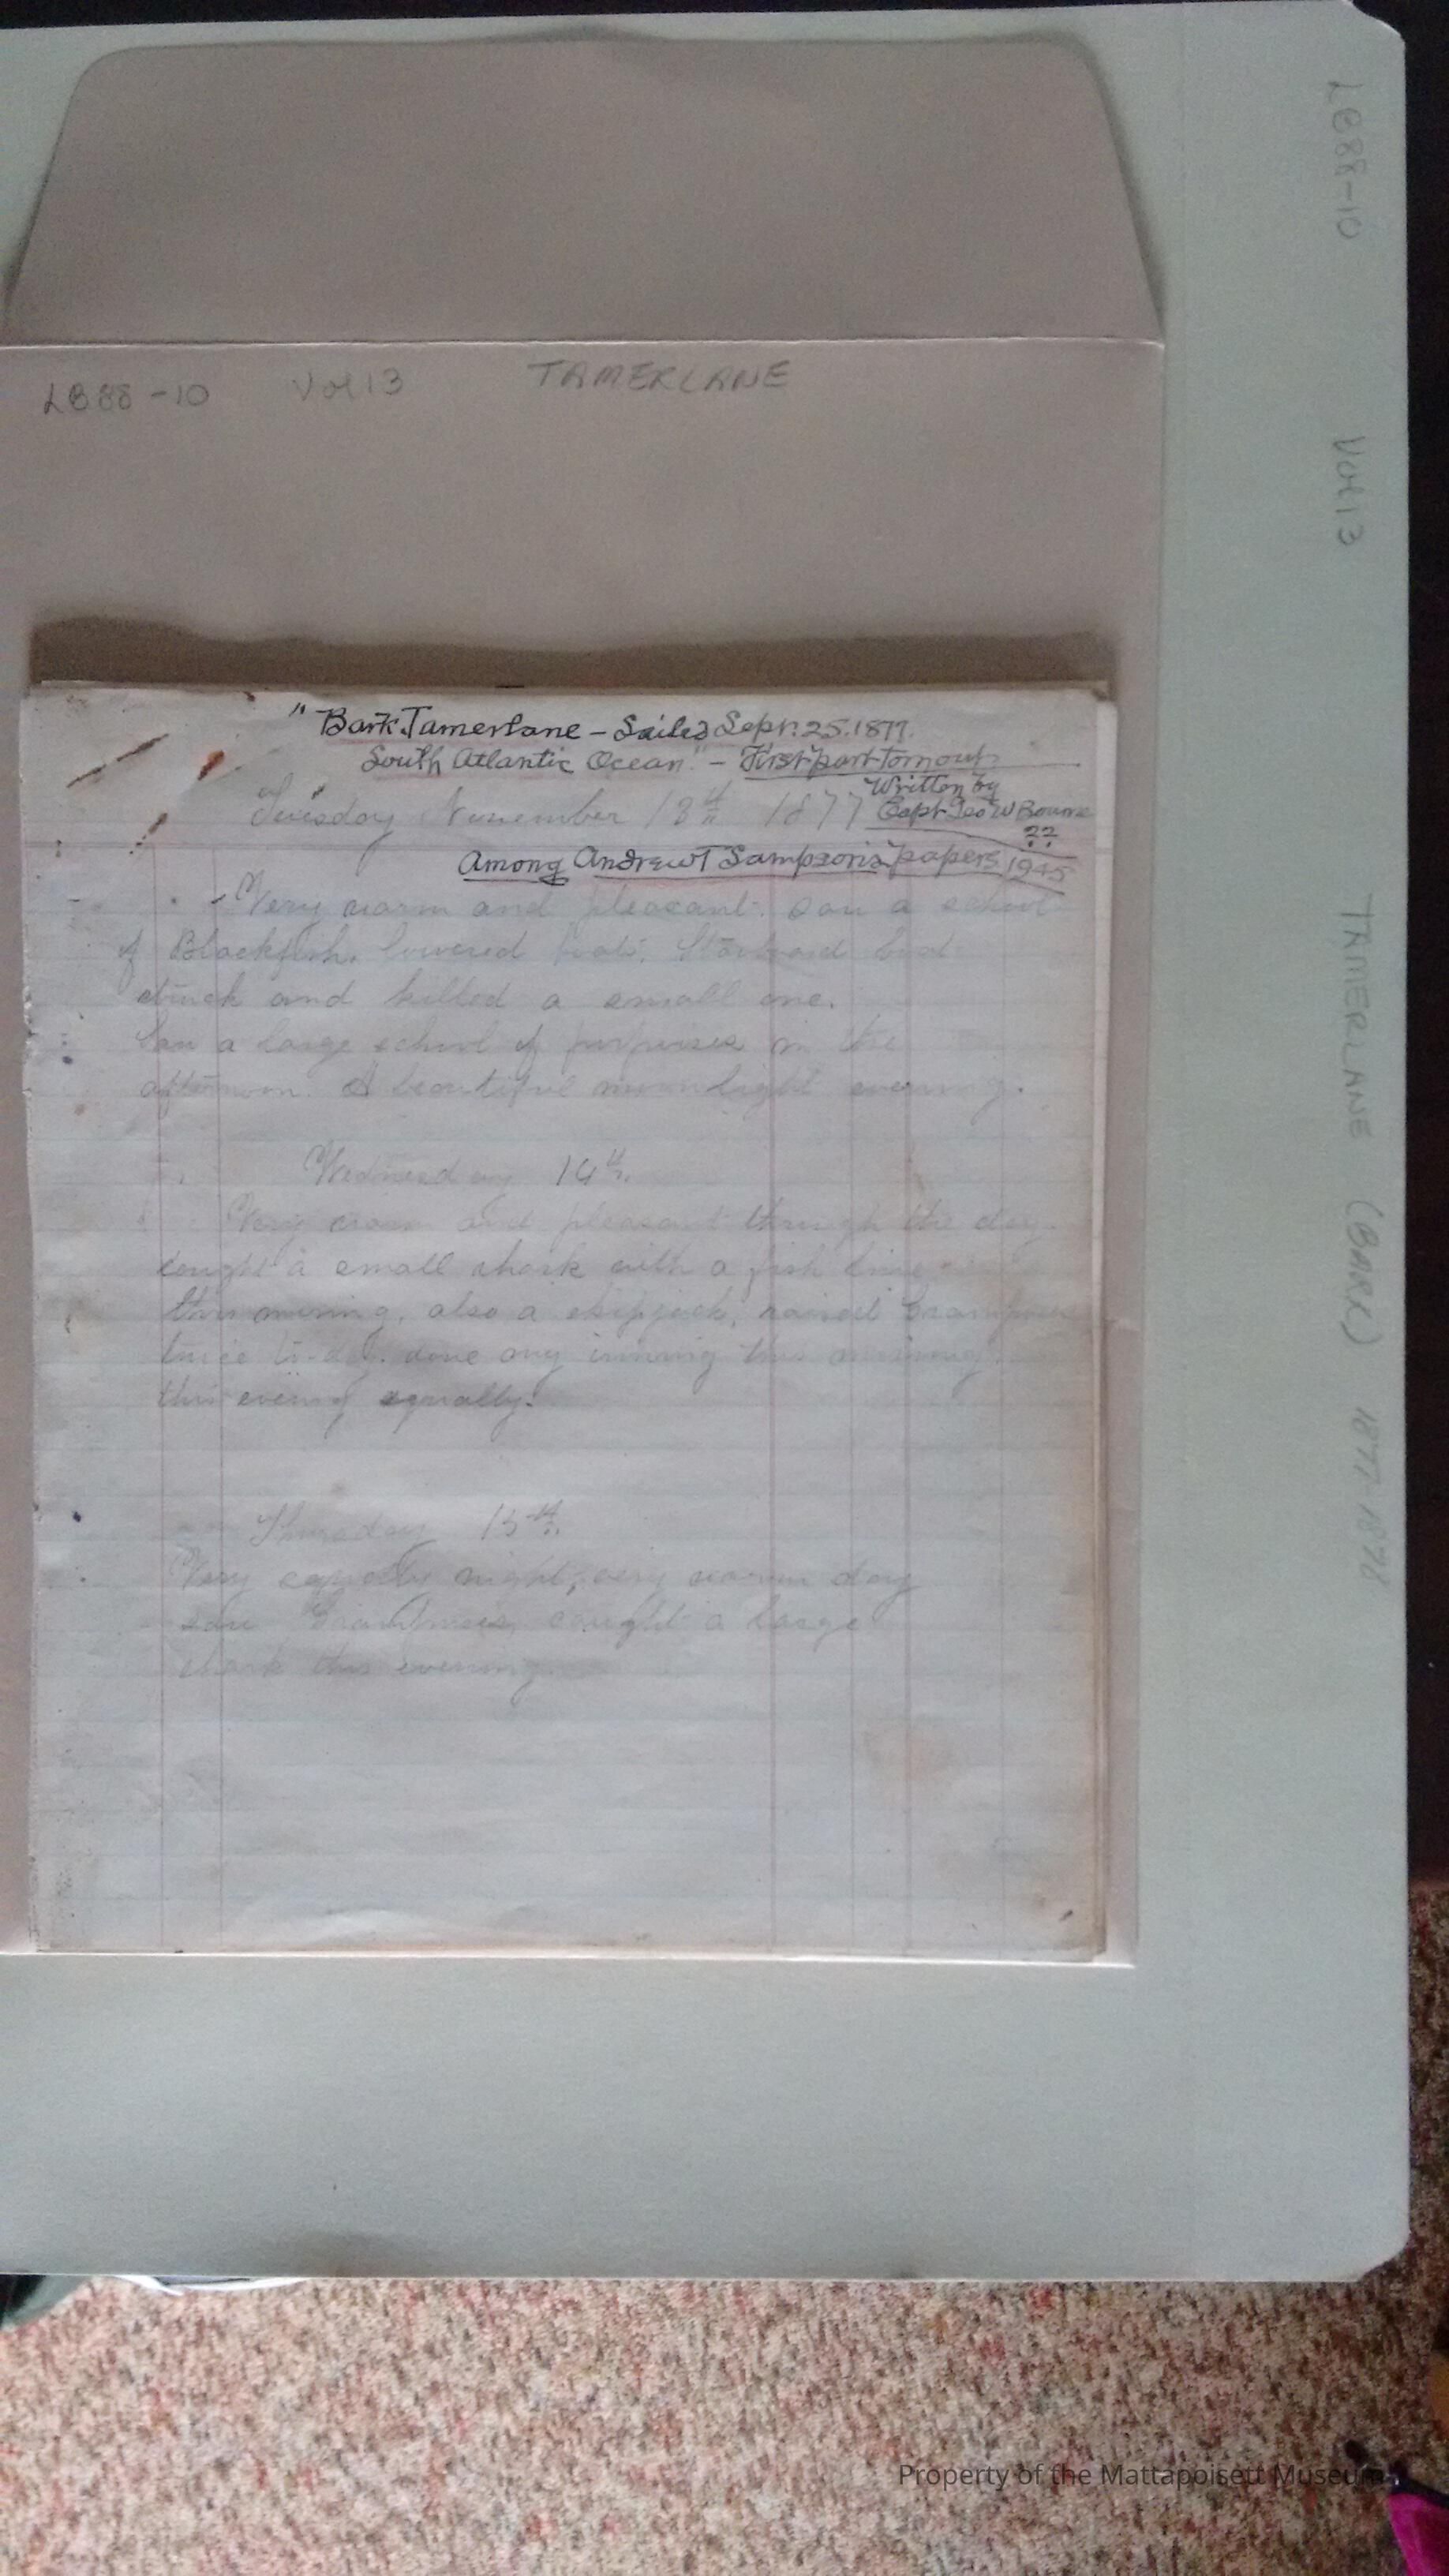 LB88-10 Vol 13 TAMERLANE
LB88-10 Vol 13 TAMERLANE (BARK) 1877-1878
"Bark Tamerlane - Sailed Sept. 25. 1877.
South Atlantic Ocean" - First part torn out
Written by
Tuesday November 13th 1877 Capt Geo W Bourne
??
Among Andrew T Sampson's papers 1945
Very warm and pleasant. Saw a school
of Blackfish. lowered boats. Starboard boat
struck and killed a small one.
Saw a large school of porpoises in the
afternoon. A beautiful moonlight evening.
Wednesday 14th.
Very warm and pleasant through the day.
caught a small shark with a fish line
this morning, also a skipjack, raised Grampuses
twice to-day. done any this morning.
this evening squally.
Thursday 15th.
Very squally night, very warm day
saw Grampuses, caught a large
shark this evening
Property of the Mattapoisett Museum